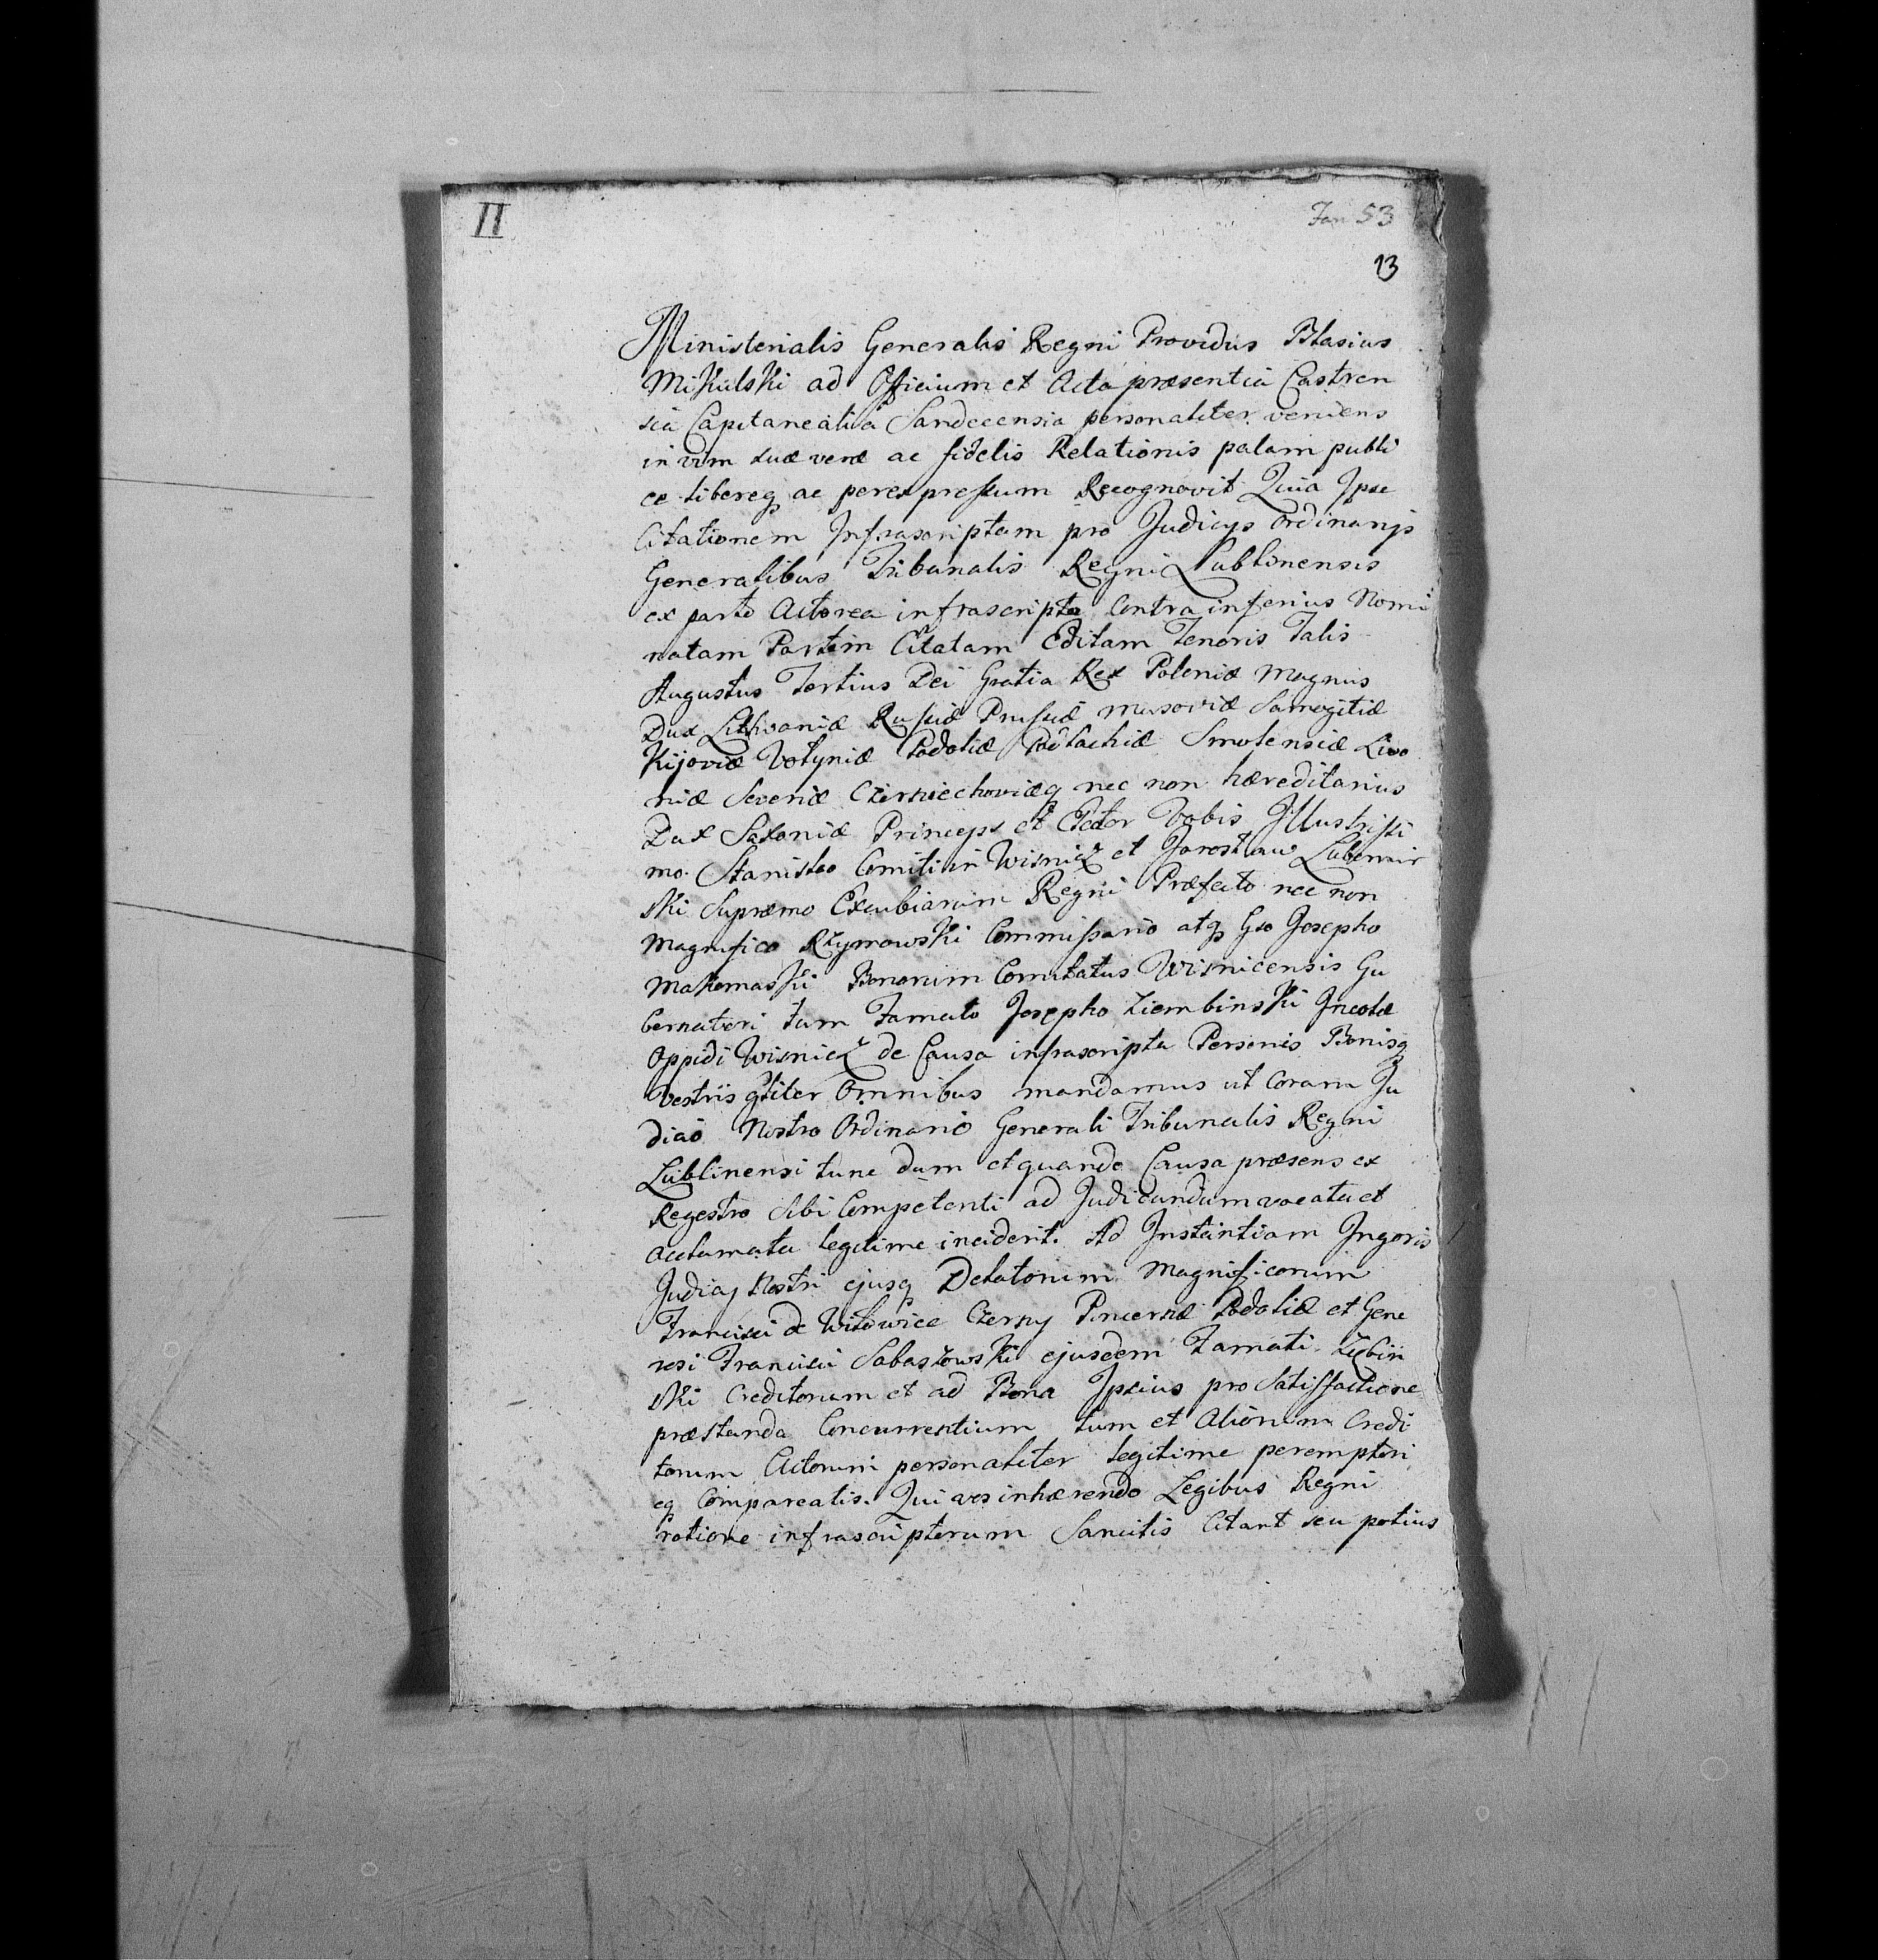 II
Fan 53
13
Ministerialis Generalis Regni Providus Blasius
Mikulski ad Officium et Acta præsentia Castren
sia Capitanealia Sandecensia personaliter veniens
in vim suæ veræ ac fidelis Relationis palam publi
ce libereq ac per expressum Recognovit Quia Ipse
Citationem Infrascriptam pro Judicys Ordinarijs
Generalibus Tribunalis Regni Lublinensis
ex parte Actorea infrascripta Contra inferius Nomi
natam Partem Citatam Editam Tenoris Talis
Augustus Tertius Dei Gratia Rex Poloniæ Magnus
Dux Lithvaniæ Russiæ Prussiæ Masoviæ Samogitiæ
Kijoviæ Volyniæ Podoliæ Podlachiæ Smolensiæ Livo
niæ Severiæ Czerniechoviæq nec non hæreditarius
Dux Saxoniæ Princeps et Elector Vobis Illustrissi
mo Stanislao Comiti in Wisnicz et Jarosław Lubomir
ski Supremo Excubiarum Regni Præfecto nec non
Magnifico Rzymowski Commissario atq Gso Josepho
Makomaski Bonorum Comitatus Wisnicensis Gu
bernatori tum Famato Josepho Ziembinski Incolæ
Oppidi Wisnicz de Causa infrascripta Personis Bonisq
Vestris gñliter Omnibus mandamus ut Coram Ju
dicio Nostro Ordinario Generali Tribunalis Regni
Lublinensi tunc dum et quando Causa præsens ex
Regestro sibi Competenti ad Judicandum vocata et
acclamata legitime inciderit. Ad Instantiam Ingoris
Judicy Nostri ejusq Delatorum Magnificorum
Francisci de Witowice Czerny Pincernæ Podoliæ et Gene
rosi Francisci Sabaszowski ejusdem Famati Ziębin
ski Creditorum et ad Bona Ipsius pro Satisfactione
præstanda Concurrentium tum et Aliorum Credi
torum Actorum personaliter legitime peremptori
eq Compareatis. Qui vos inhærendo Legibus Regni
ratione infrascriptorum Sancitis Citant seu potius